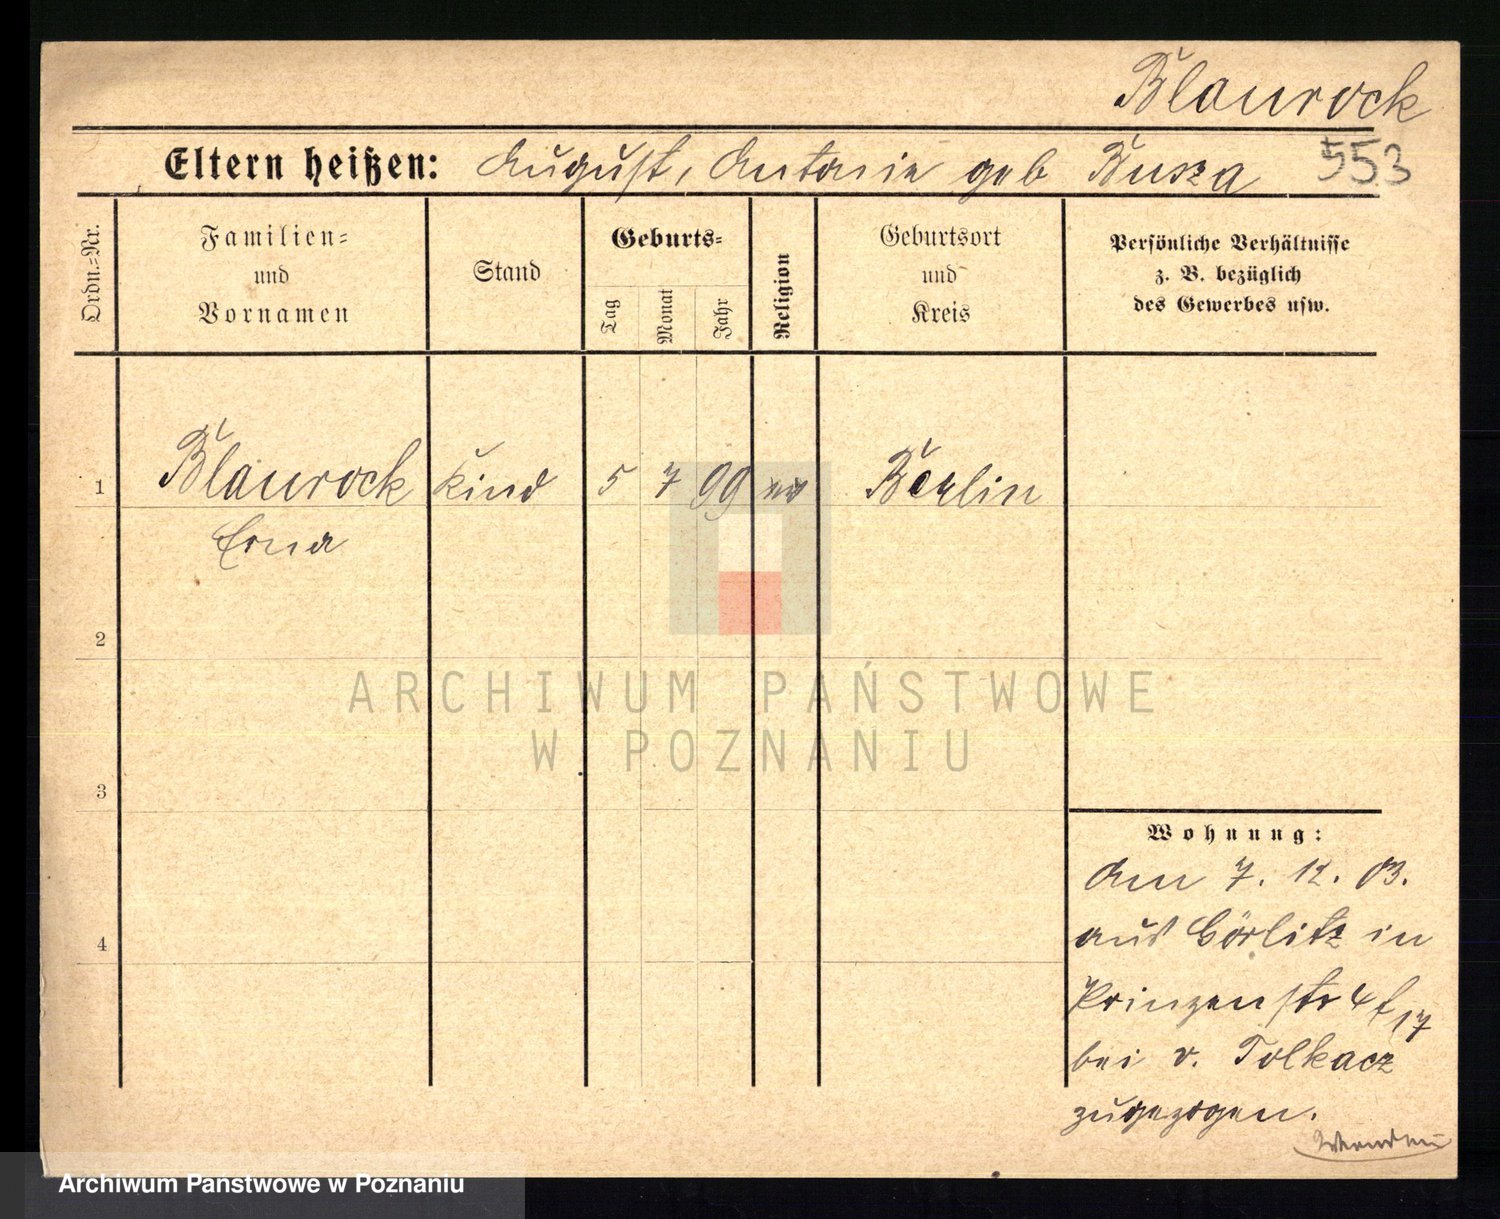 Blaurock
Eltern heißen: August, Antonie geb Busza 553
Ordn.=Nr.
Familien=
und
Vornamen
Stand
Geburts=
Tag
Monat
Jahr
Religion
Geburtsort
und
Kreis
Persönliche Verhältnisse
z. B. bezüglich
des Gewerbes usw.
1 Blaurock Kind 5 7 99 ev Berlin
Erna
2
3
4
ARCHIWUM PAŃSTWOWE
W POZNANIU
Wohnung:
Am 7. 12. 03.
aus Görlitz in
Prinzenstr
17
bei v. Tolkacz
zugezogen.
Archiwum Państwowe w Poznaniu